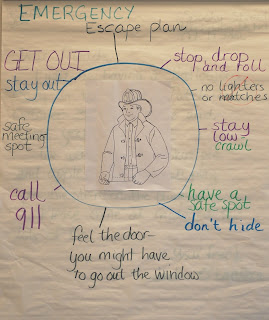 EMERGENCY
Escape plan
GET OUT
stay out
stop, drop
and roll
no lighters
or matches
safe
meeting
spot
stay
low-
crawl
call
911
have a
safe spot
don't hide
feel the door-
you might have
to go out the window